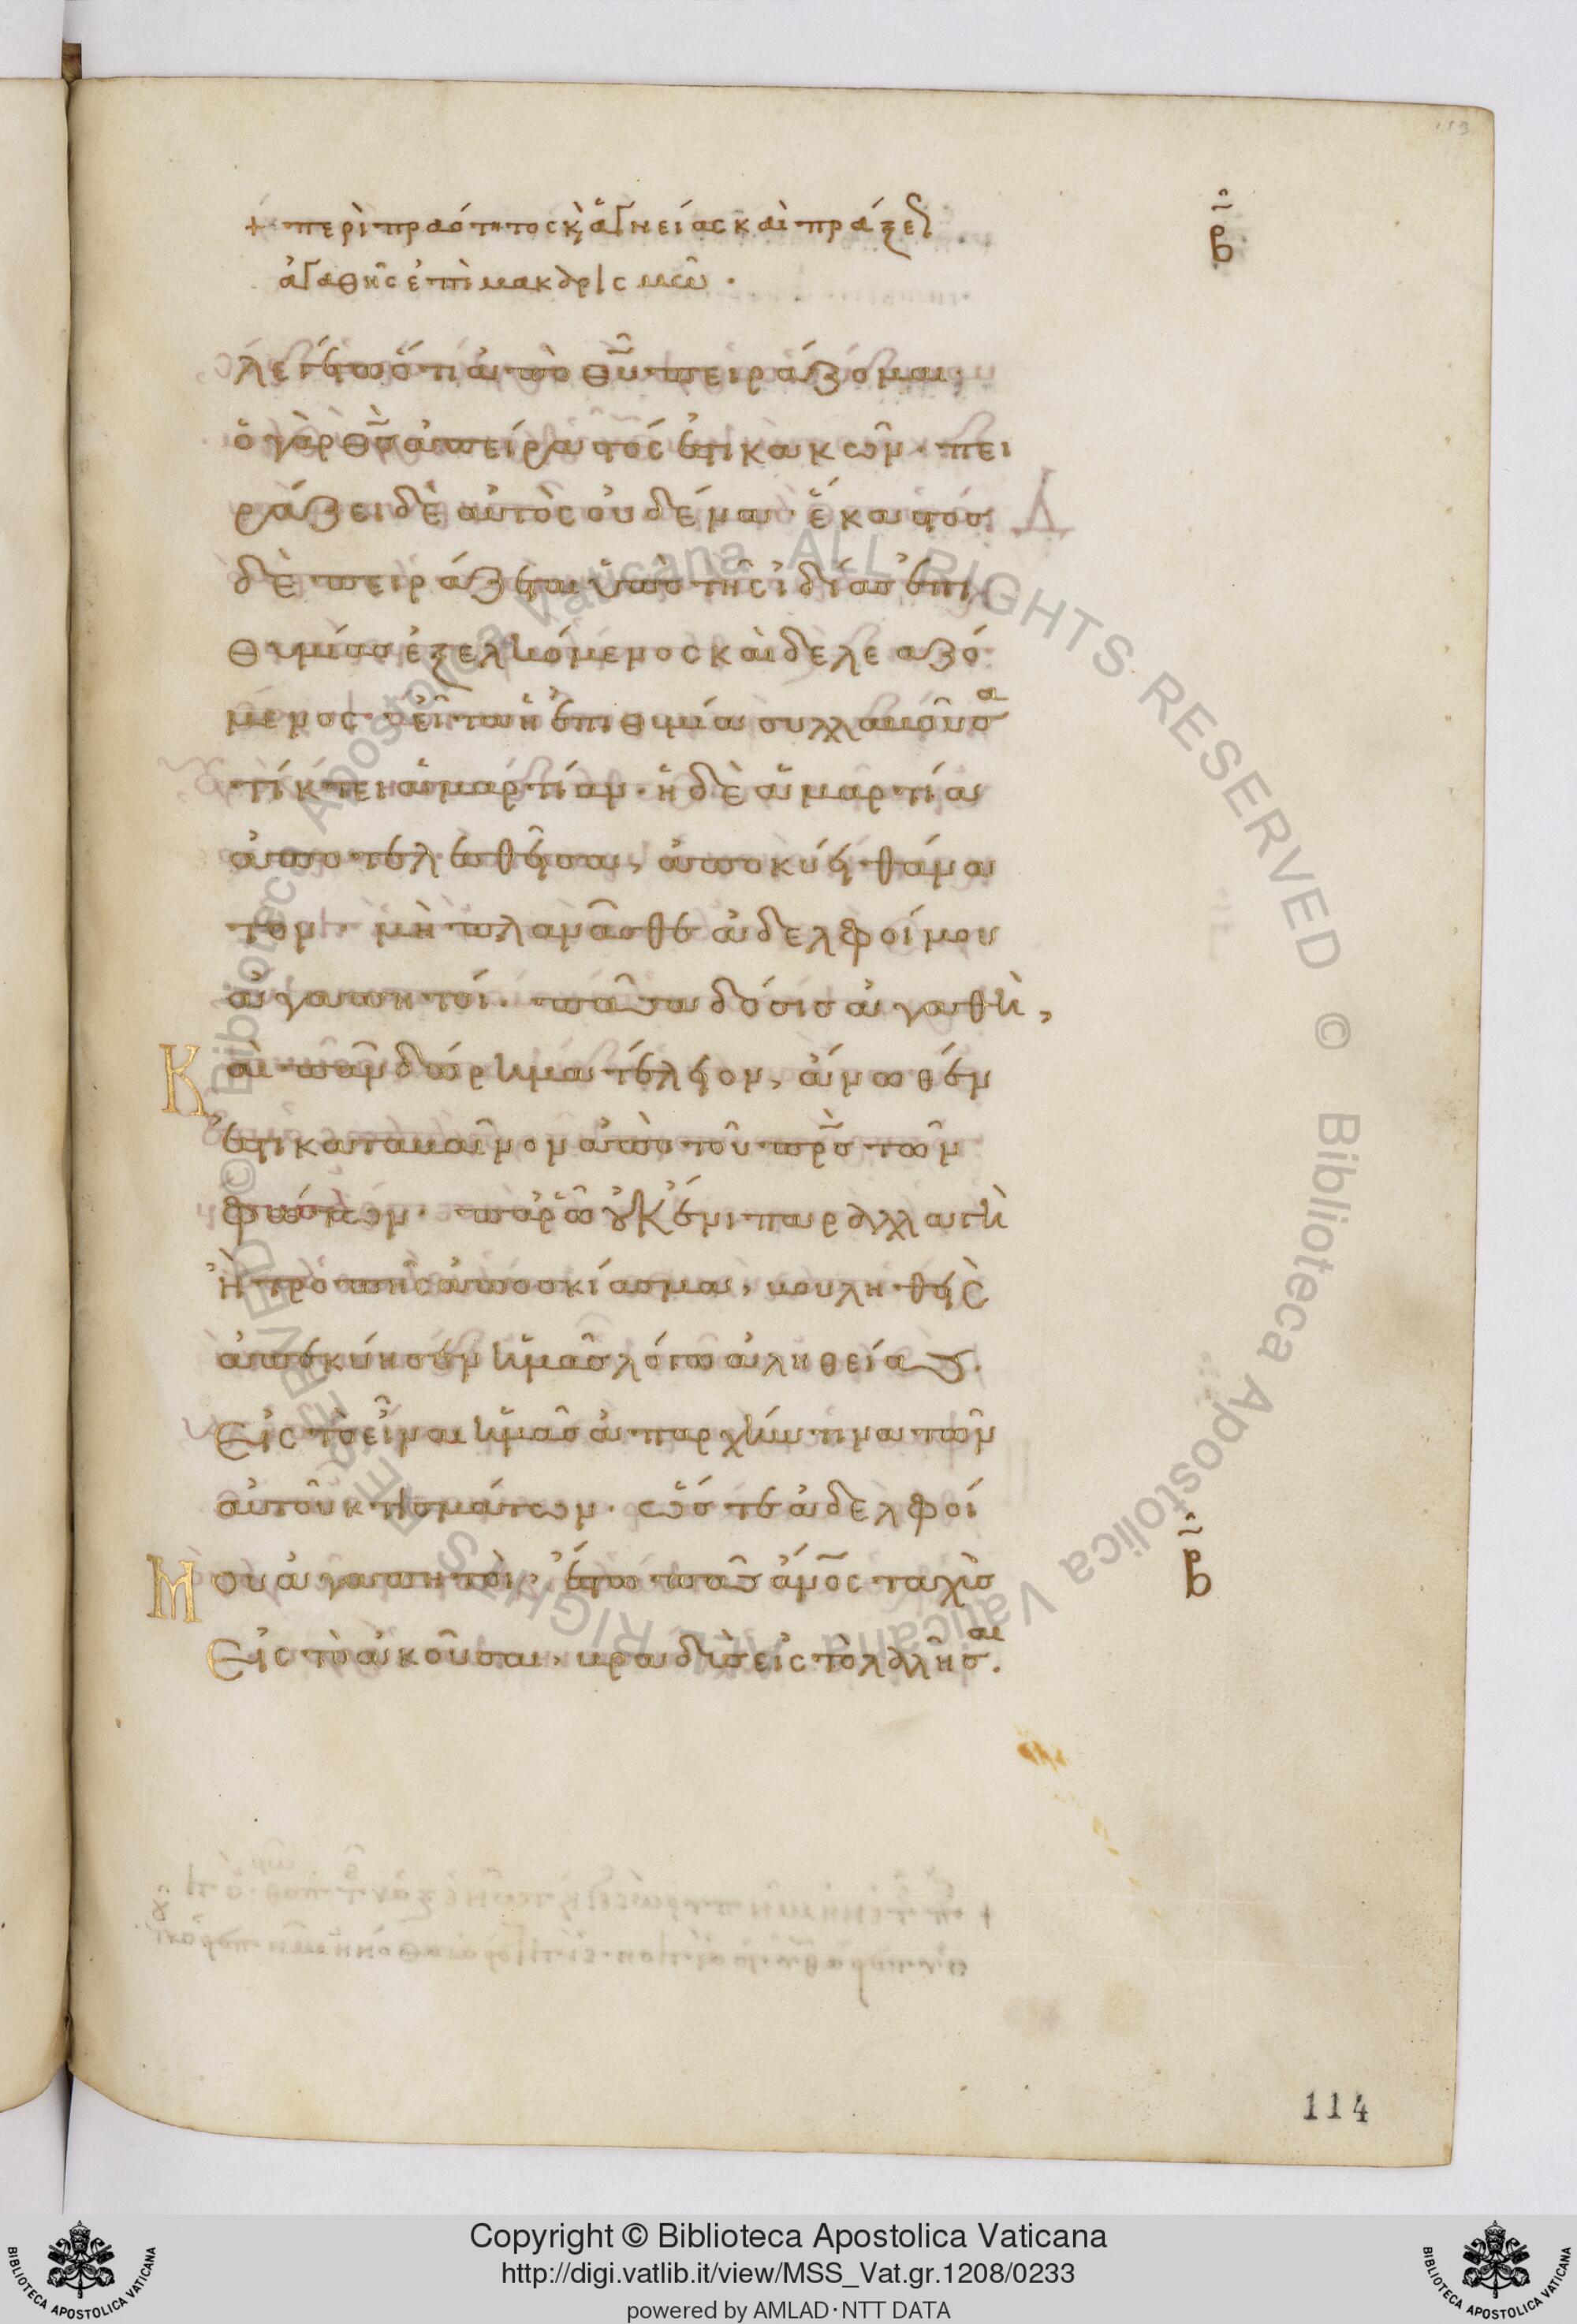 + περὶ πραότητος κ ἁγνείας καὶ πράξε
ἀγαθῆς ἐπὶ μακαρισμῶ ·
β
λεγέτω ὅτι ἀπὸ θυ πειράζομαι·
ὁ γὰρ θς ἀπείραστός ἐστι κακῶν· πει
ράζει δὲ αὐτὸς οὐδένα· ἕκαστος
δὲ πειράζεται ὑπὸ τῆς ἰδίας ἐπι
θυμίας ἐξελκόμενος καὶ δελεαζό
μενος· εἶτα ἡ ἐπιθυμία συλλαβοῦσα
τίκτει ἁμαρτίαν· ἡ δὲ ἁμαρτία
ἀποτελεσθεῖσα, ἀποκύει θάνα
τον· μὴ πλανᾶσθε ἀδελφοί μου
ἀγαπητοί· πᾶσα δόσις ἀγαθὴ,
Καὶ πᾶν δώρημα τέλειον, ἄνωθέν
ἐστι καταβαῖνον ἀπὸ τοῦ πρς τῶν
φώτων· παρ' ᾧ οὐκ ἔνι παραλλαγὴ
ἢ τροπῆς ἀποσκίασμα, βουληθεὶς
ἀπεκύησεν ἡμᾶς λόγω ἀληθείας.
Εἰς τὸ εἶναι ἡμᾶς ἀπαρχήν τινα τῶν
αὐτοῦ κτισμάτων· ὥστε ἀδελφοί
Μου ἀγαπητοὶ· ἔστω πᾶς ἄνος ταχὺς
Εἰς τὸ ἀκοῦσαι, βραδὺς εἰς τὸ λαλῆσαι.
β
114
© Biblioteca Apostolica Vaticana ALL RIGHTS RESERVED
© Biblioteca Apostolica Vaticana ALL RIGHTS RESERVED
Copyright © Biblioteca Apostolica Vaticana
http://digi.vatlib.it/view/MSS_Vat.gr.1208/0233
powered by AMLAD·NTT DATA
BIBLIOTECA APOSTOLICA VATICANA
BIBLIOTECA APOSTOLICA VATICANA